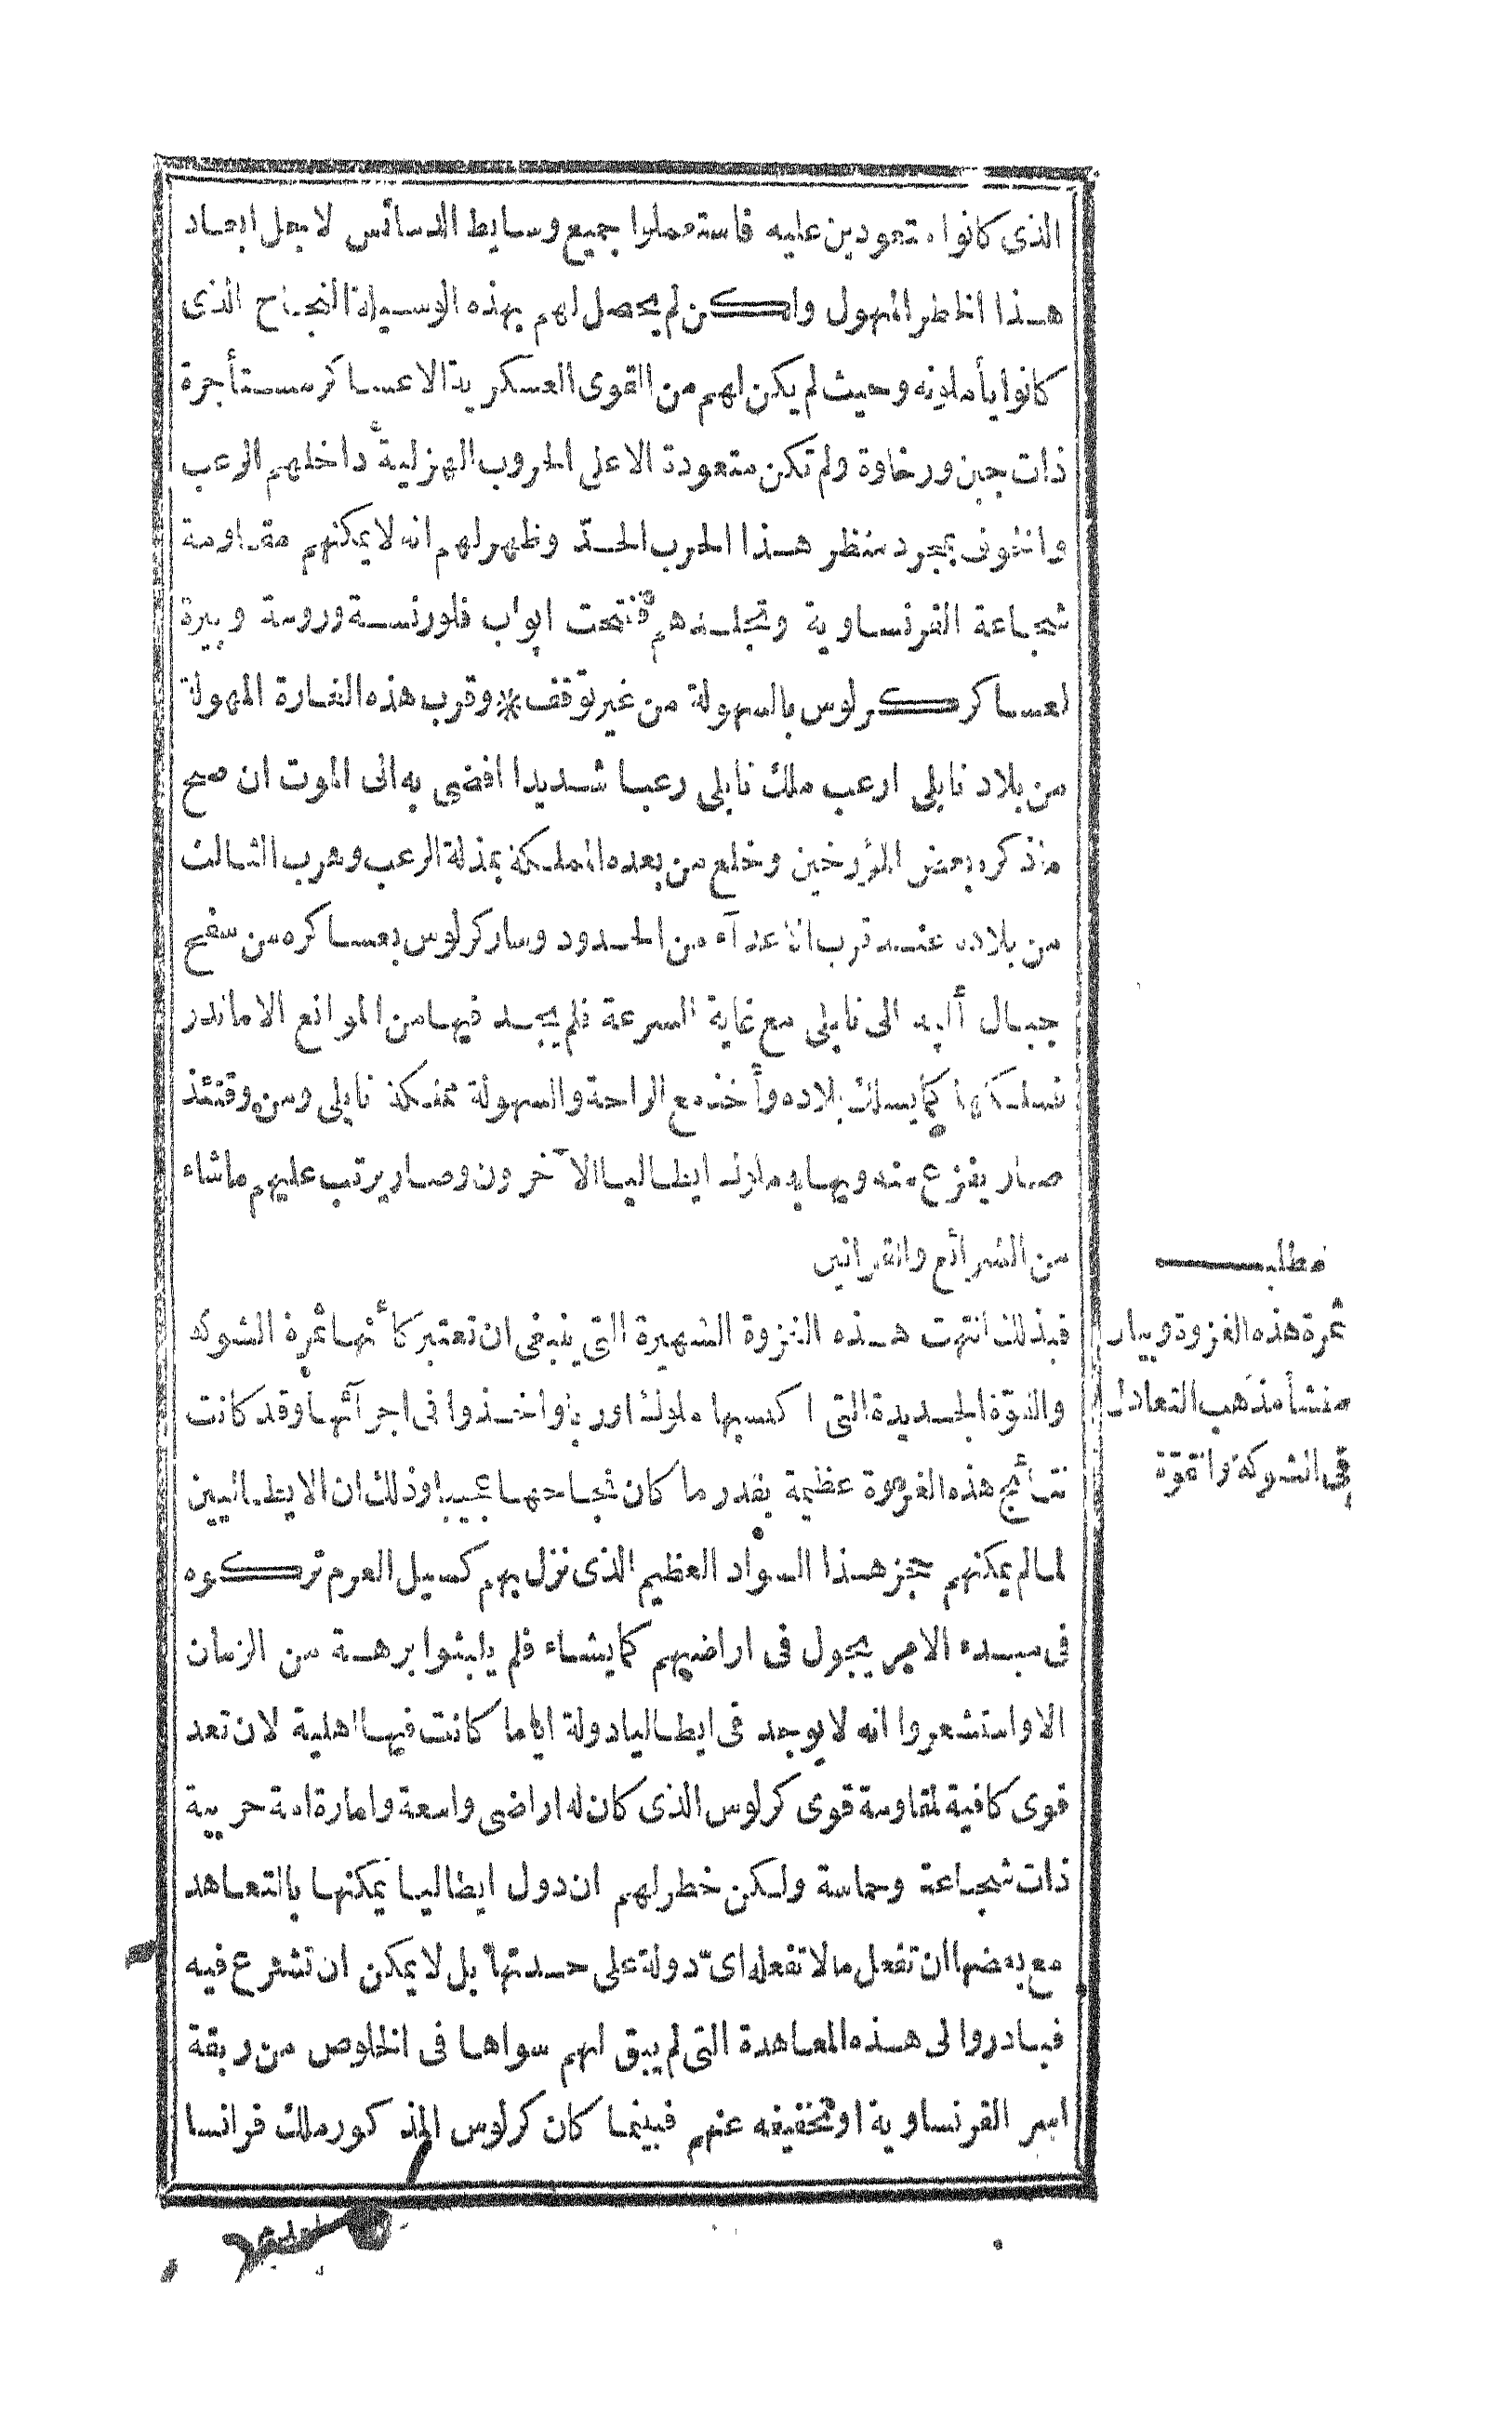 الذى كانوا متعودين عليه فاستعملوا جميع وسايط الدسائس لاجل ابعاد
هذا الخطر المهول ولكن لم يحصل لهم بهذه الوسيلة النجاح الذى
كانوا يأملونه وحيث لم يكن لهم من القوى العسكرية الا عساكر مستأجرة
ذات جبن ورخاوة ولم تكن متعودة الا على الحروب الهزلية داخلهم الرعب
والخوف بمجرد منظر هذا الحرب الحدّ وظهر لهم انه لا يمكنهم مقاومة
شجاعة الفرنساوية وتجلدهم فتحت ابواب فلورنسة ورومة وبيزة
لعساكر كرلوس بالسهولة من غير توقف * وقرب هذه الغارة المهولة
من بلاد نابلى ارعب ملك نابلى رعبا شديدا افضى به الى الموت ان صح
ما ذكره بعض المؤرخين وخلع من بعده المملكة بمذلة الرعب وهرب الثالث
من بلاده عند قرب الاعدآء من الحدود وسار كرلوس بعساكره من سفح
جبال ألپه الى نابلى مع غاية السرعة فلم يجد فيها من الموانع الا ما ندر
فسلكها كما يسلك بلاده وأخذ مع الراحة والسهولة مملكة نابلى ومن وقتئذ
صار يفزع منه ويهابه ملوك ايطاليا الآخرون وصار يرتب عليهم ما شاء
من الشرائع والقوانين
مطلب
ثمرة هذه الغزوة وبيان
منشأ مذهب التعادل
فى الشوكة والقوّة
فبذلك انتهت هذه الغزوة الشهيرة التى ينبغى ان تعتبر كأنها ثمرة الشوكة
والقوّة الجديدة التى اكسبها ملوك اوروپا واخذوا فى اجرآئها وقد كانت
نتائج هذه الغزوة عظيمة بقدر ما كان نجاحها عجيبا وذلك ان الايطاليين
لما لم يمكنهم حجز هذا السواد العظيم الذى نزل بهم كسيل العرم تركوه
فى مبدء الامر يجول فى اراضيهم كما يشاء فلم يلبثوا برهة من الزمان
الا واستشعروا انه لا يوجد فى ايطاليا دولة اياما كانت فيها اهلية لان تعد
قوى كافية لمقاومة قوى كرلوس الذى كان له اراضى واسعة وامارة امة حربية
ذات شجاعة وحماسة ولكن خطر لهم ان دول ايطاليا يمكنها بالتعاهد
مع بعضها ان تفعل ما لا تفعله اىّ دولة على حدتها بل لا يمكن ان تشرع فيه
فبادروا لى هذه المعاهدة التى لم يبق لهم سواها فى الخلوص من ربقة
اسر الفرنساوية او تخفيفه عنهم فبينما كان كرلوس المذكور ملك فرانسا